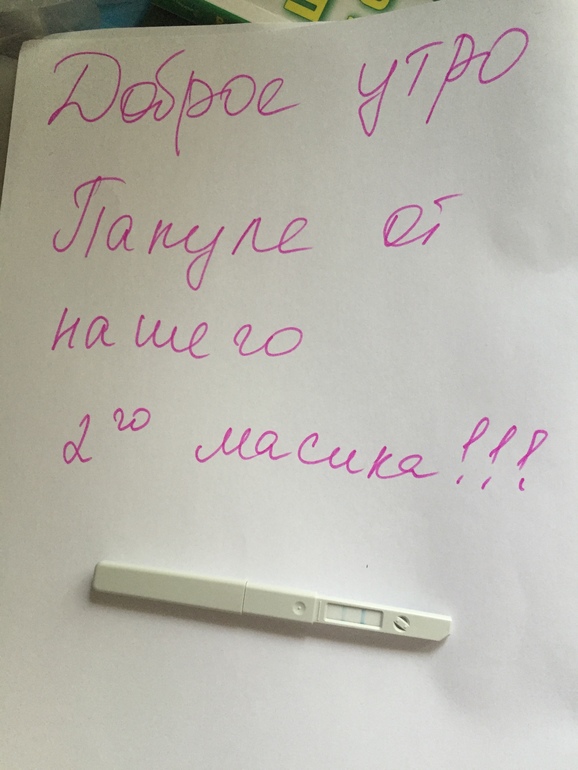 Доброе утро
Папуле от
нашего
2го масика!!!